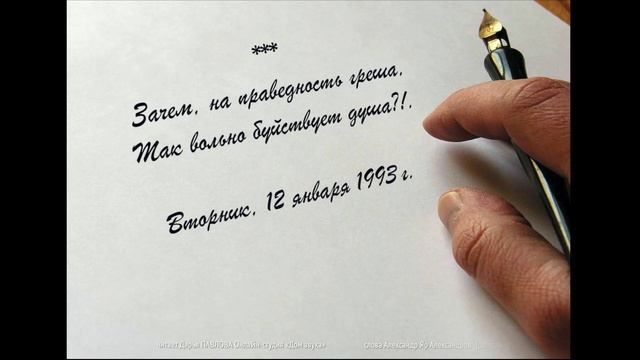 ***
Зачем, на праведность греша,
Так вольно буйствует душа?!.
Вторник, 12 января 1993 г.
читает Дарья ПАВЛОВА Онлайн-студия «Дом звука»
слова Александр Яр Александров